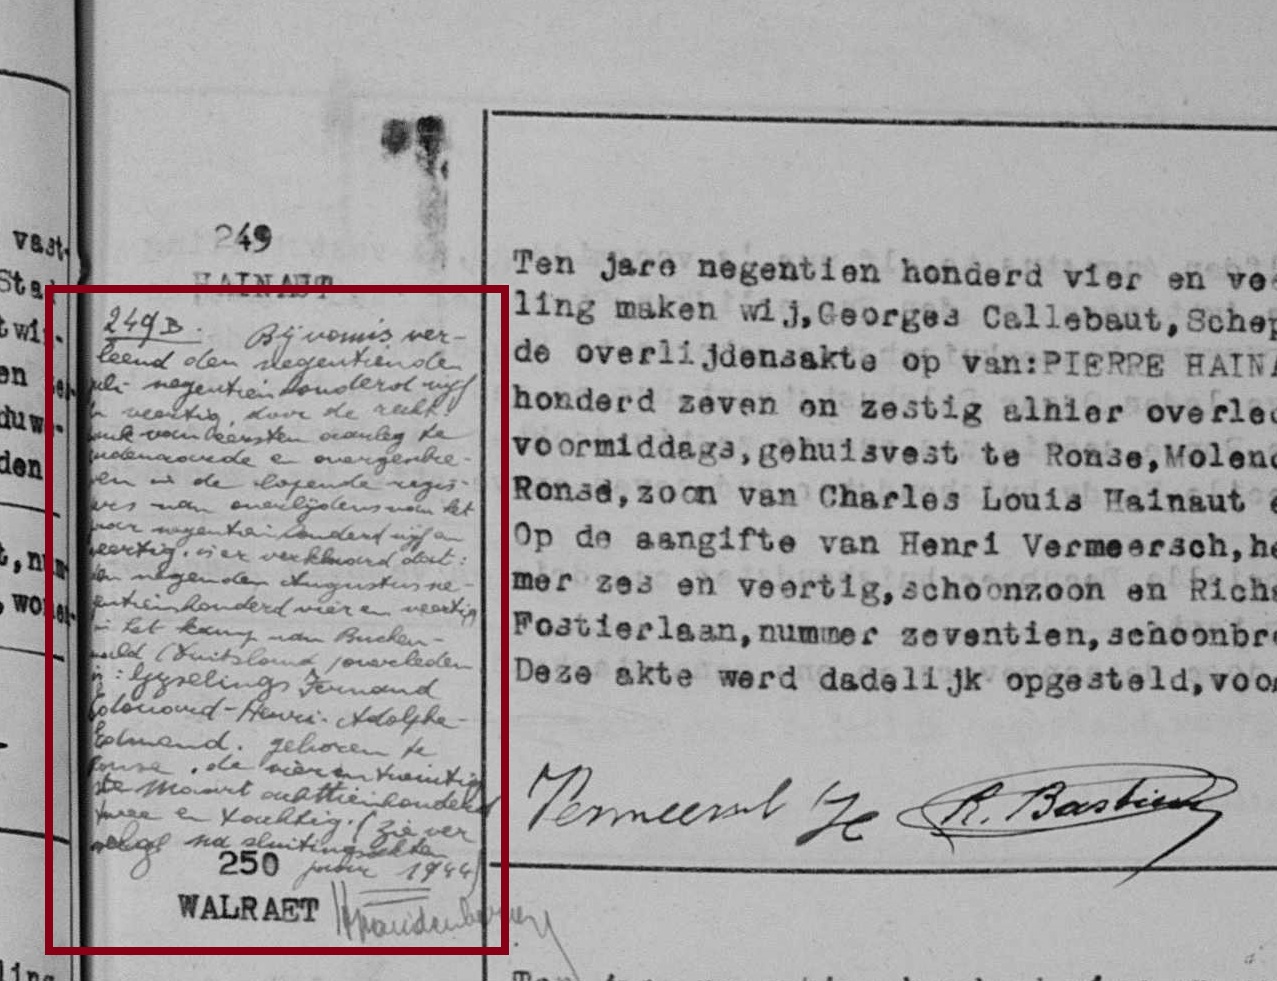 vast-
Stad
twin-
en
duwe-
den
t,num
,woner-
ling
249
HAINAUT
249B. Bij vonnis ver-
leend den negentienden
uli negentienhonderd vijf
n veertig, door de recht-
ank van eersten aanleg te
udenaarde en overgeschre-
ven in de lopende regis-
ers van overlijdens van het
jaar negentienhonderd vijf en
veertig, is er verklaard dat:
den negenden Augustus ne-
gentienhonderd vier en veertig
in het kamp van Buchen-
wald (Duitsland) overleden
is: Gyselings Fernand
Edouard-Henri-Adolphe-
Edmond. geboren te
Ronse, de vierentwintig
ste Maart achttienhonderd
twee en tachtig. (Zie ver
volgd na sluitingsakten
jaar 1944)
250
WALRAET
Ten jare negentien honderd vier en vee
ling maken wij,Georges Callebaut,Schep
de overlijdensakte op van:PIERRE HAINA
honderd zeven en zestig alhier overled
voormiddags,gehuisvest te Ronse,Molend
Ronse,zoon van Charles Louis Hainaut e
Op de aangifte van Henri Vermeersch,he
mer zes en veertig,schoonzoon en Richa
Fostierlaan,nummer zeventien,schoonbro
Deze akte werd dadelijk opgesteld,voor
Vermeersch He R. Bastien